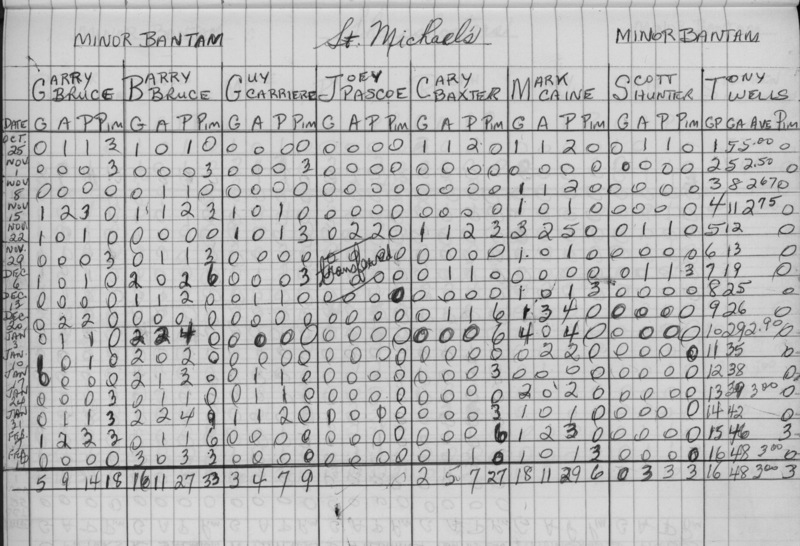 MINOR BANTAM St. Michael's MINOR BANTAM
GARRY BRUCE BARRY BRUCE GUY CARRIERE JOEY PASCOE CARY BAXTER MARK CAINE SCOTT HUNTER TONY WELLS
DATE G A P Pim G A P Pim G A P Pim G A P Pim G A P Pim G A P Pim G A P Pim GP GA AVE Pim
OCT. 25 0 1 1 3 1 0 1 0 0 0 0 0 0 0 0 0 1 1 2 0 1 1 2 0 0 1 1 0 1 5 5.00 0
NOV 1 0 0 0 3 0 0 0 3 0 0 0 3 0 0 0 0 0 0 0 0 0 0 0 0 0 0 0 0 2 5 2.50 0
NOV 8 0 0 0 0 0 1 1 0 0 0 0 0 0 0 0 0 0 0 0 0 1 1 2 0 0 0 0 0 3 8 267 0
NOV 15 1 2 3 0 1 1 2 3 1 0 1 0 0 0 0 0 0 0 0 0 1 0 1 0 0 0 0 0 4 11 275 0
NOV. 22 1 0 1 0 0 0 0 0 1 0 1 3 0 2 2 0 1 1 2 3 3 2 5 0 0 1 1 0 5 12 0
NOV. 29 0 0 0 3 0 1 1 3 0 0 0 0 transferred 0 0 0 0 1 0 1 0 0 0 0 0 6 13 0
DEC 6 1 0 1 0 2 0 2 6 0 0 0 3 0 1 1 0 0 0 0 0 0 1 1 3 7 19 0
DEC 13 0 0 0 0 1 1 2 0 0 1 0 0 0 0 0 0 1 0 1 3 0 0 0 0 8 25 0
DEC 20 0 2 2 0 0 0 0 0 0 0 0 0 0 0 0 0 0 1 1 6 1 3 4 0 0 0 0 0 9 26 0
JAN 3 0 1 1 0 2 2 4 0 0 0 0 0 0 0 0 0 0 0 0 6 4 0 4 0 0 0 0 0 10 29 2.90 0
JAN 10 1 0 1 0 2 0 2 0 0 0 0 0 0 0 0 0 0 0 0 0 0 2 2 0 0 0 0 0 11 35 0
JAN 17 0 0 0 0 2 1 3 0 0 1 1 0 0 0 0 0 0 0 0 3 0 0 0 0 0 0 0 0 12 38 0
JAN 24 0 0 0 3 0 1 1 0 0 1 1 0 0 0 0 0 0 0 0 0 2 0 2 0 0 0 0 0 13 39 3.00 0
JAN 31 0 1 1 3 2 2 4 9 1 1 2 0 0 0 0 0 0 0 0 3 1 0 1 0 0 0 0 0 14 42 0
FEB 7 1 2 3 3 0 1 1 6 0 0 0 0 0 0 0 0 0 0 0 6 1 2 3 0 0 0 0 0 15 46 3
FEB 14 0 0 0 0 3 0 3 3 0 0 0 0 0 0 0 0 0 1 1 0 1 0 1 3 0 0 0 0 16 48 3.00 0
5 9 14 18 16 11 27 33 3 4 7 9 2 5 7 27 18 11 29 6 0 3 3 3 16 48 3.00 3